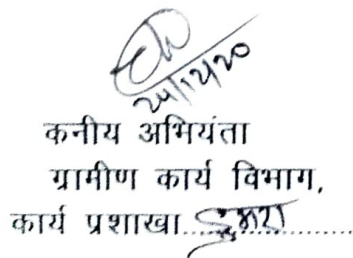 24/12/20
कनीय अभियंता
ग्रामीण कार्य विभाग,
कार्य प्रशाखा डुमरा